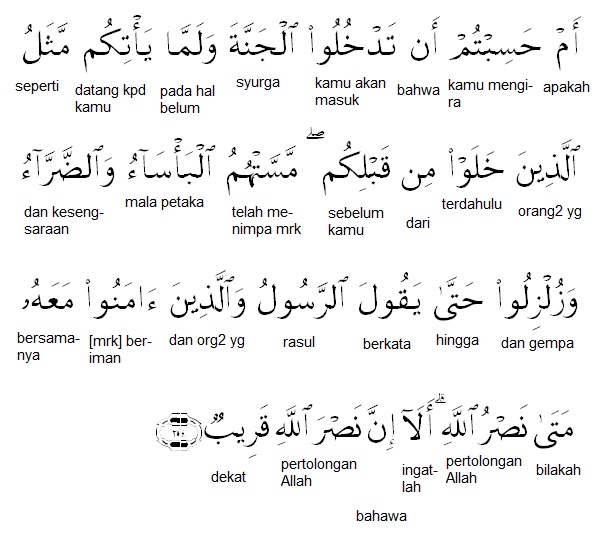 أَمْ حَسِبْتُمْ أَن تَدْخُلُوا۟ ٱلْجَنَّةَ وَلَمَّا يَأْتِكُم مَّثَلُ
apakah kamu mengi-ra bahwa kamu akan masuk syurga pada hal belum datang kpd kamu seperti
ٱلَّذِينَ خَلَوْا۟ مِن قَبْلِكُم ۖ مَّسَّتْهُمُ ٱلْبَأْسَآءُ وَٱلضَّرَّآءُ
orang2 yg terdahulu dari sebelum kamu telah me-nimpa mrk mala petaka dan keseng-saraan
وَزُلْزِلُوا۟ حَتَّىٰ يَقُولَ ٱلرَّسُولُ وَٱلَّذِينَ ءَامَنُوا۟ مَعَهُۥ
dan gempa hingga berkata rasul dan org2 yg [mrk] ber-iman bersama-nya
مَتَىٰ نَصْرُ ٱللَّهِ ۗ أَلَآ إِنَّ نَصْرَ ٱللَّهِ قَرِيبٌ
bilakah pertolongan Allah ingat-lah bahawa pertolongan Allah dekat